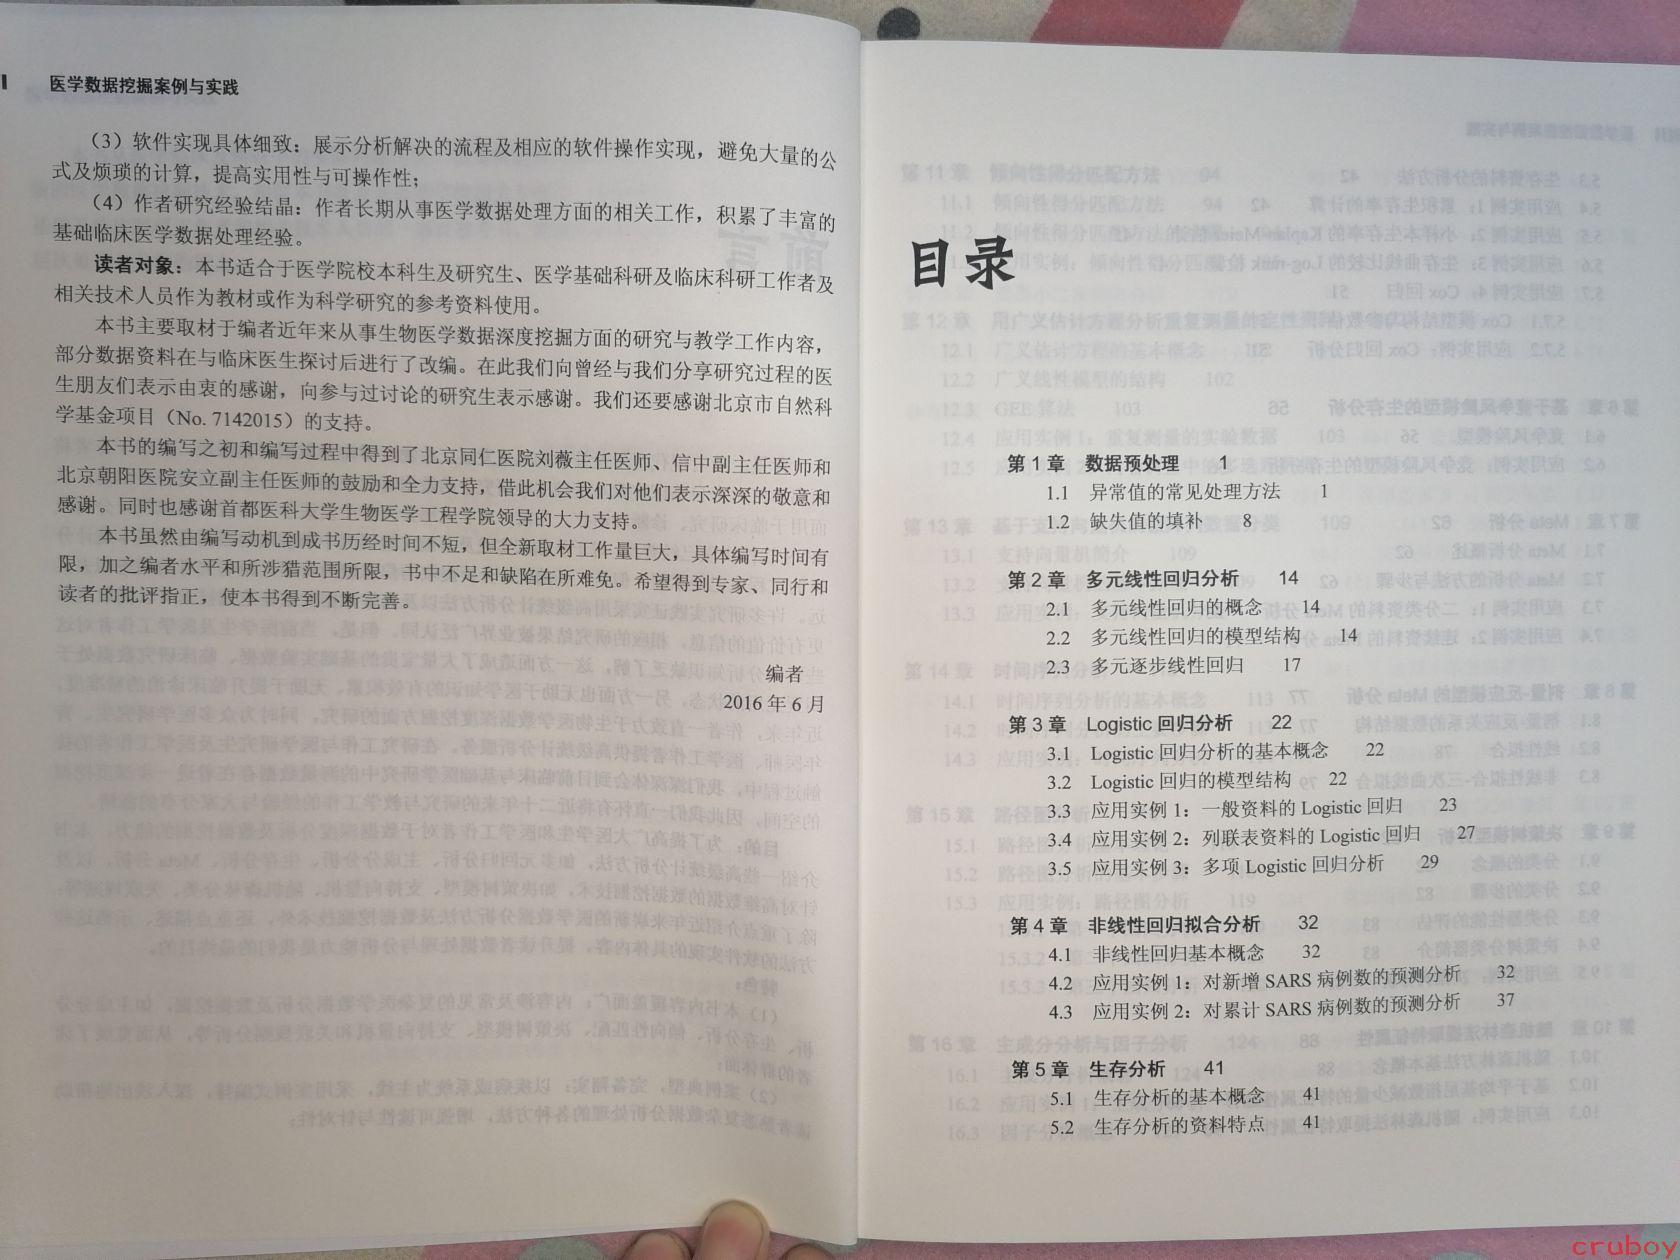 医学数据挖掘案例与实践
（3）软件实现具体细致：展示分析解决的流程及相应的软件操作实现，避免大量的公
式及烦琐的计算，提高实用性与可操作性；
（4）作者研究经验结晶：作者长期从事医学数据处理方面的相关工作，积累了丰富的
基础临床医学数据处理经验。
读者对象：本书适合于医学院校本科生及研究生、医学基础科研及临床科研工作者及
相关技术人员作为教材或作为科学研究的参考资料使用。
本书主要取材于编者近年来从事生物医学数据深度挖掘方面的研究与教学工作内容，
部分数据资料在与临床医生探讨后进行了改编。在此我们向曾经与我们分享研究过程的医
生朋友们表示由衷的感谢，向参与过讨论的研究生表示感谢。我们还要感谢北京市自然科
学基金项目（No. 7142015）的支持。
本书的编写之初和编写过程中得到了北京同仁医院刘薇主任医师、信中副主任医师和
北京朝阳医院安立副主任医师的鼓励和全力支持，借此机会我们对他们表示深深的敬意和
感谢。同时也感谢首都医科大学生物医学工程学院领导的大力支持。
本书虽然由编写动机到成书历经时间不短，但全新取材工作量巨大，具体编写时间有
限，加之编者水平和所涉猎范围所限，书中不足和缺陷在所难免。希望得到专家、同行和
读者的批评指正，使本书得到不断完善。
编者
2016 年 6 月
目录
第 1 章 数据预处理 1
1.1 异常值的常见处理方法 1
1.2 缺失值的填补 8
第 2 章 多元线性回归分析 14
2.1 多元线性回归的概念 14
2.2 多元线性回归的模型结构 14
2.3 多元逐步线性回归 17
第 3 章 Logistic 回归分析 22
3.1 Logistic 回归分析的基本概念 22
3.2 Logistic 回归的模型结构 22
3.3 应用实例 1：一般资料的 Logistic 回归 23
3.4 应用实例 2：列联表资料的 Logistic 回归 27
3.5 应用实例 3：多项 Logistic 回归分析 29
第 4 章 非线性回归拟合分析 32
4.1 非线性回归基本概念 32
4.2 应用实例 1：对新增 SARS 病例数的预测分析 32
4.3 应用实例 2：对累计 SARS 病例数的预测分析 37
第 5 章 生存分析 41
5.1 生存分析的基本概念 41
5.2 生存分析的资料特点 41
cruboy